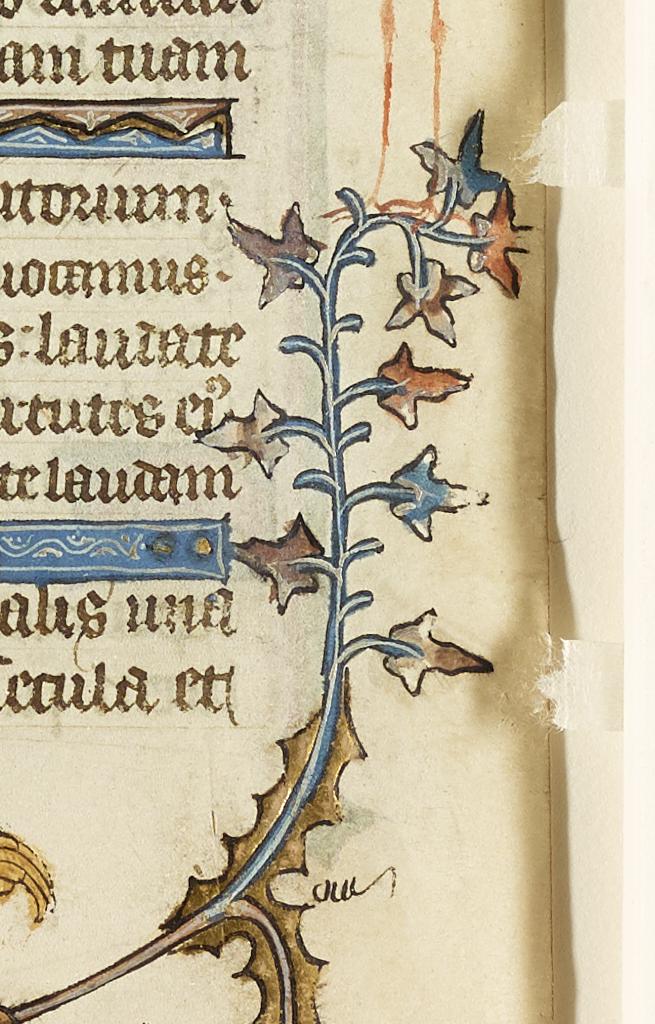 am tuam
utorium·
uocamus·
s: laudate
rtutes ei9
te laudam
alis una
secula et